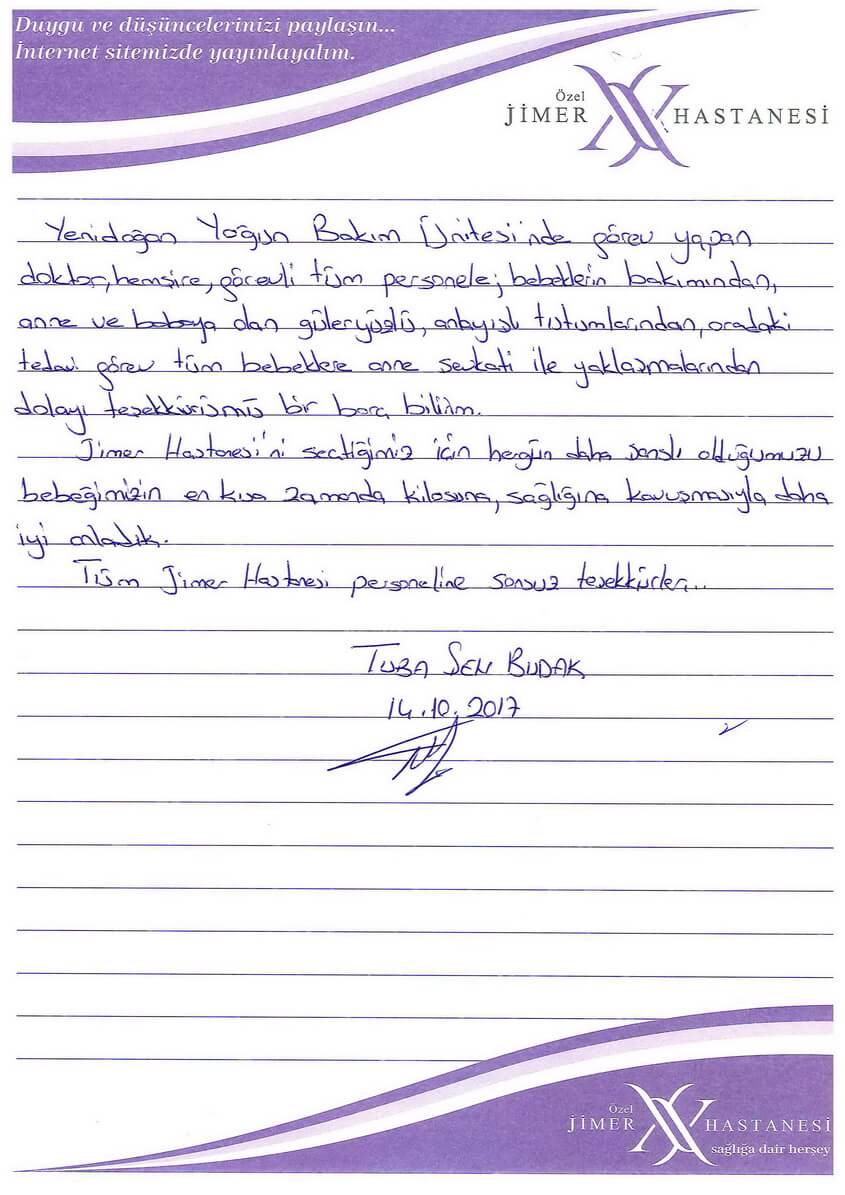 Duygu ve düşüncelerinizi paylaşın...
İnternet sitemizde yayınlayalım.
Özel
JİMER HASTANESİ
Yenidoğan Yoğun Bakım Ünitesi'nde görev yapan
doktor, hemşire, görevli tüm personele; bebeklerin bakımından,
anne ve babaya olan güleryüzlü, anlayışlı tutumlarından, oradaki
tedavi gören tüm bebeklere anne şevkati ile yaklaşmalarından
dolayı teşekkürümüz bir borç bilirim.
Jimer Hastanesi'ni seçtiğimiz için hergün daha şanslı olduğumuzu
bebeğimizin en kısa zamanda kilosuna, sağlığına kavuşmasıyla daha
iyi anladık.
Tüm Jimer Hastanesi personeline sonsuz teşekkürler...
TUBA ŞEN BUDAK
14.10.2017
Özel
JİMER HASTANESİ
sağlığa dair herşey